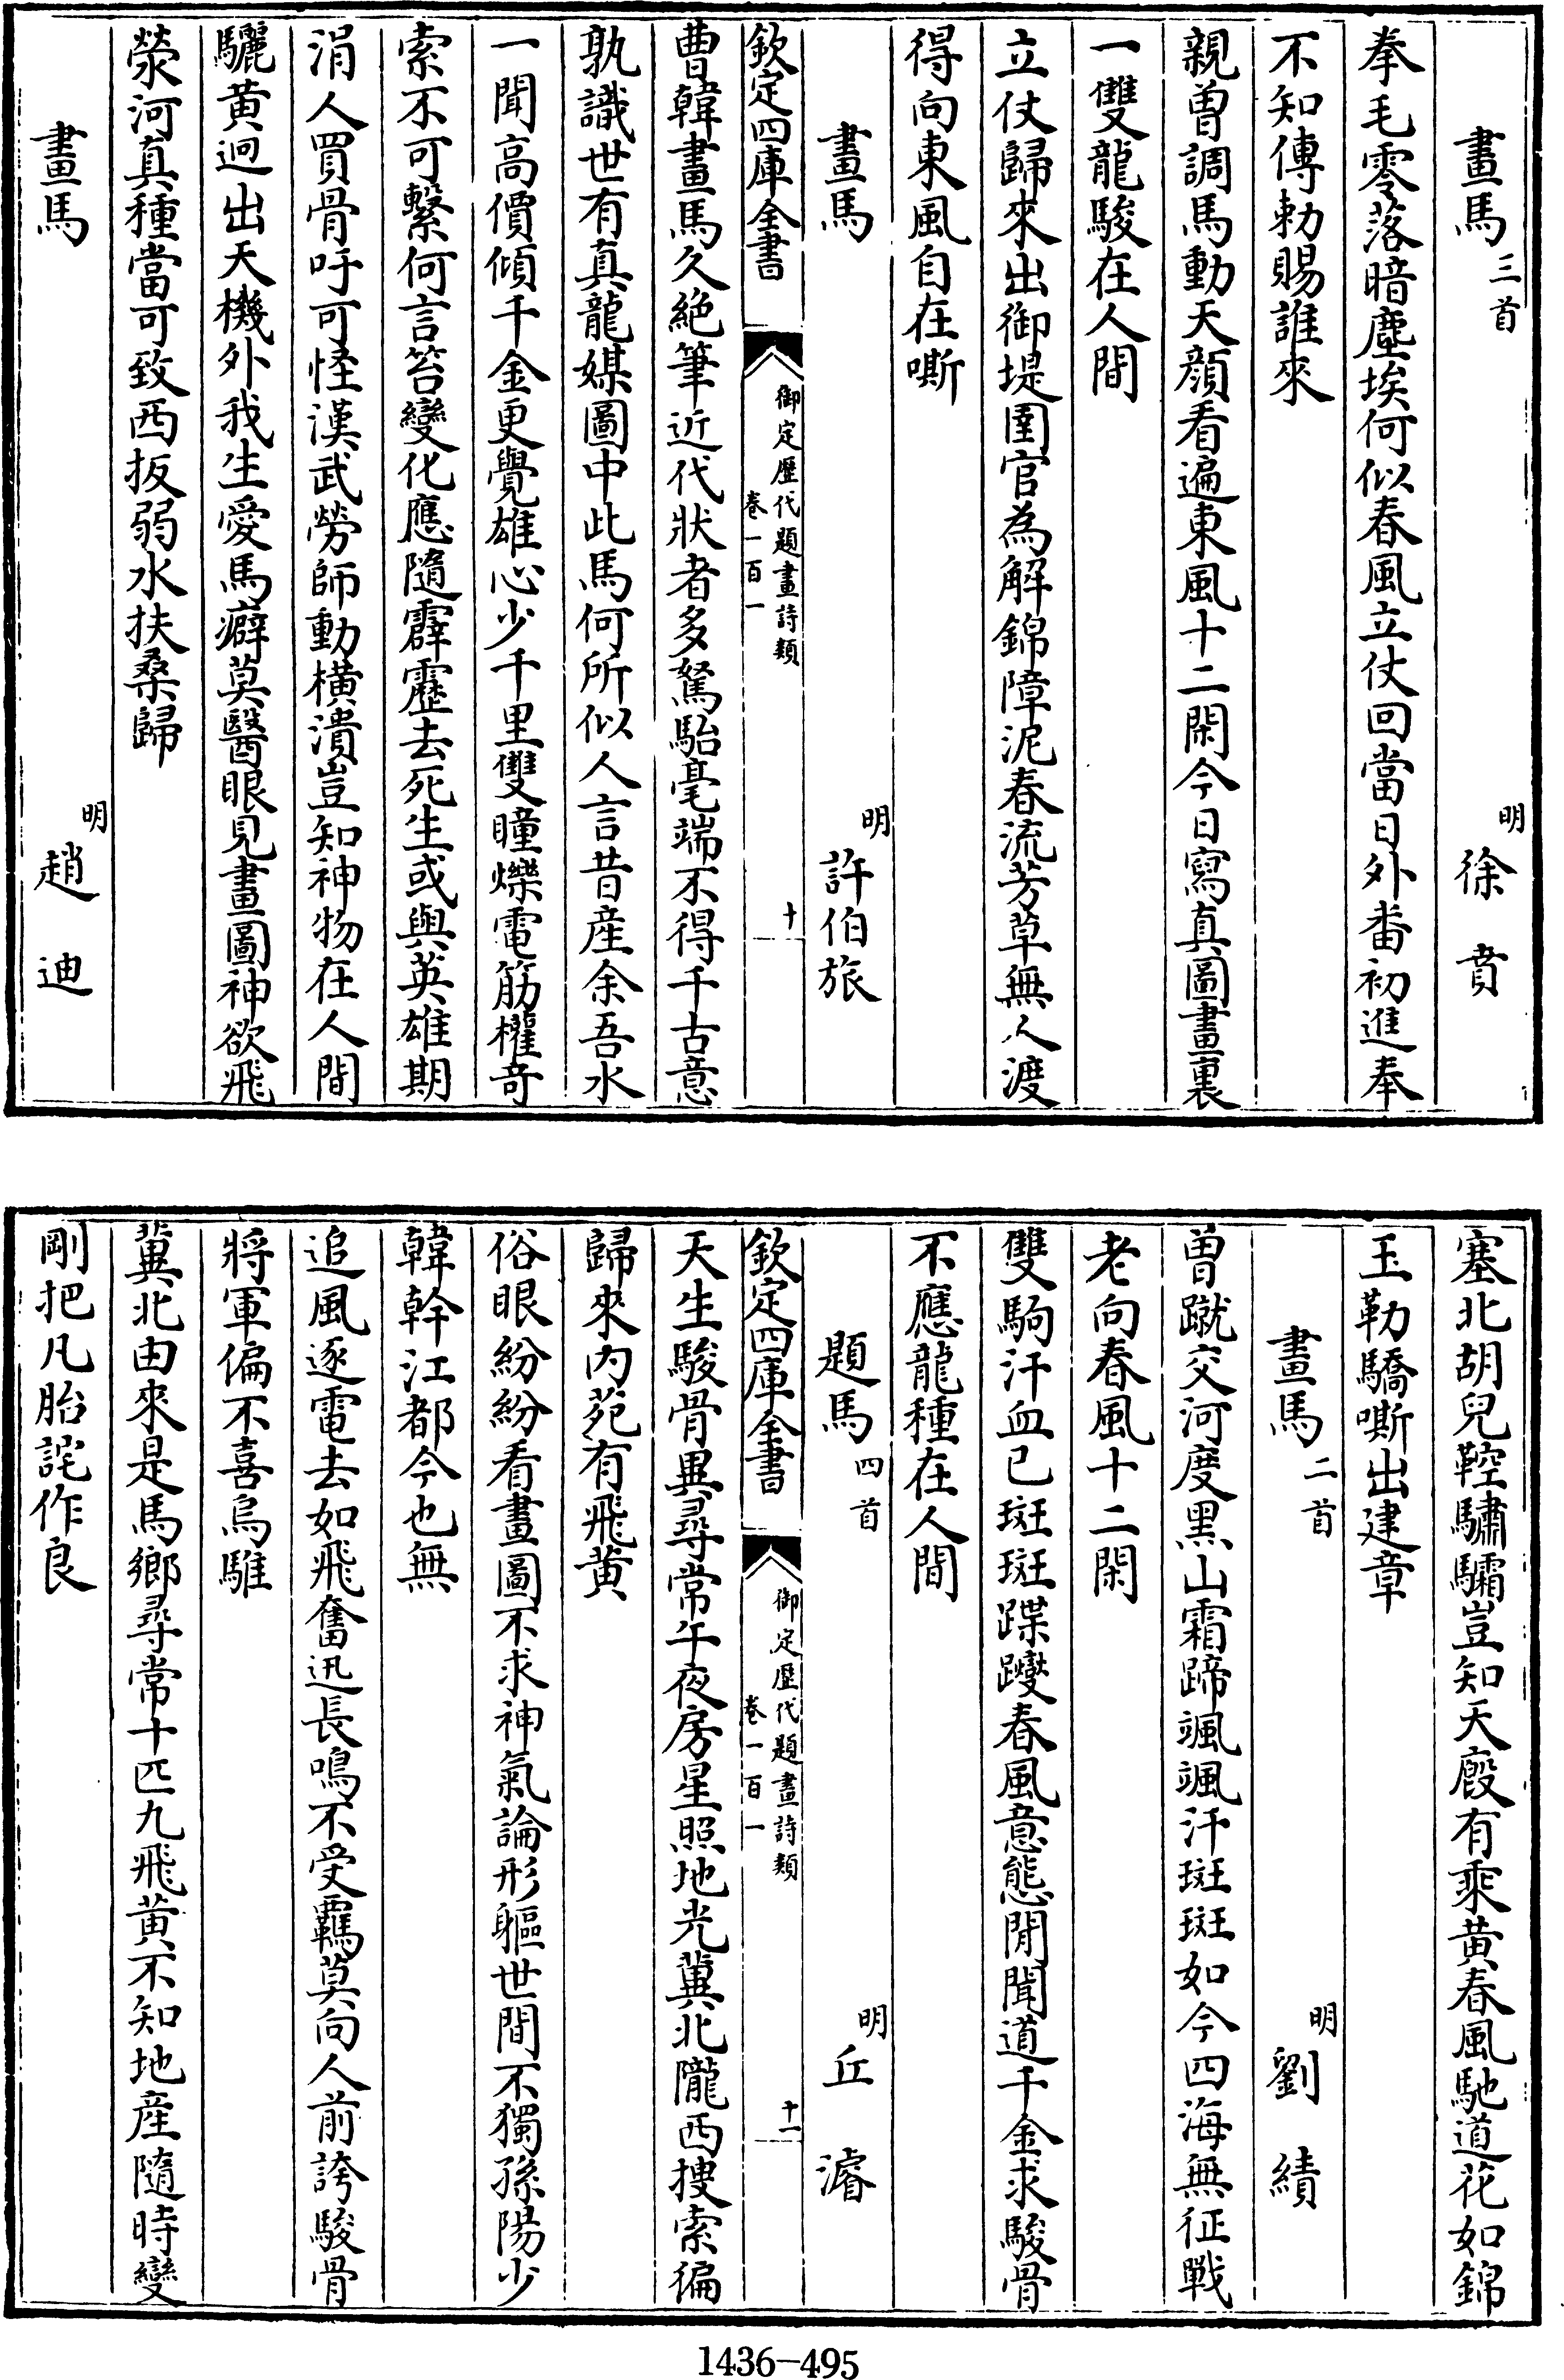 畫馬三首　明徐賁
拳毛零落暗塵埃何似春風立仗回當日外番初進奉
不知傳勅賜誰來
親曽調馬動天顔看遍東風十二閑今日寫真圖畫裏
一雙龍駿在人間
立仗歸來出御堤圉官為解錦障泥春流芳草無人渡
得向東風自在嘶
畫馬　明許伯旅
欽定四庫全書　御定歷代題畫詩類卷一百一　十
曹韓畫馬久絶筆近代狀者多駑駘毫端不得千古意
孰識世有真龍媒圖中此馬何所似人言昔産余吾水
一聞髙價傾千金更覺雄心少千里雙瞳爍電筋權竒
索不可繫何言笞變化應隨霹靂去死生或與英雄期
涓人買骨吁可怪漢武勞師動横潰豈知神物在人間
驪黄迥出天機外我生愛馬癖莫醫眼見畫圖神欲飛
滎河真種當可致西扳弱水扶桑歸
畫馬　明趙迪
塞北胡兒鞚驌驦豈知天廐有乘黄春風馳道花如錦
玉勒驕嘶出建章
畫馬二首　明劉績
曽蹴交河度黑山霜蹄颯颯汗斑斑如今四海無征戰
老向春風十二閑
雙駒汗血已斑斑蹀躞春風意態閒聞道千金求駿骨
不應龍種在人間
題馬四首　明丘濬
欽定四庫全書　御定歷代題畫詩類卷一百一　十一
天生駿骨異尋常午夜房星照地光冀北隴西搜索徧
歸來内苑有飛黄
俗眼紛紛看畫圖不求神氣論形軀世間不獨孫陽少
韓幹江都今也無
追風逐電去如飛奮迅長鳴不受羈莫向人前誇駿骨
將軍偏不喜烏騅
冀北由來是馬鄉尋常十匹九飛黄不知地産隨時變
剛把凡胎詫作良
1436-495